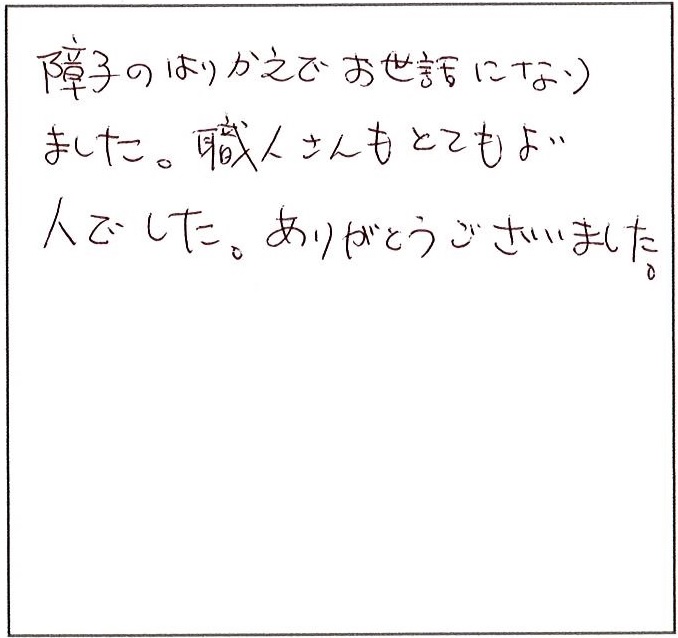 障子のはりかえでお世話になり
ました。職人さんもとてもよい
人でした。ありがとうございました。